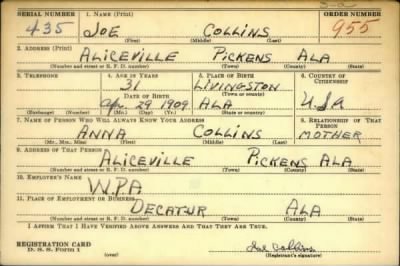 S-2
SERIAL NUMBER 1. NAME (Print) ORDER NUMBER
435 JOE COLLINS 955
(First) (Middle) (Last)
2. ADDRESS (Print)
ALICEVILLE PICKENS ALA
(Number and street or R. F. D. number) (Town) (County) (State)
3. TELEPHONE 4. AGE IN YEARS 5. PLACE OF BIRTH 6. COUNTRY OF CITIZENSHIP
31 LIVINGSTON
DATE OF BIRTH (Town or county)
Ap. 29 1909 ALA U.S.A
(Exchange) (Number) (Mo.) (Day) (Yr.) (State or country)
7. NAME OF PERSON WHO WILL ALWAYS KNOW YOUR ADDRESS 8. RELATIONSHIP OF THAT PERSON
ANNA COLLINS MOTHER
(Mr., Mrs., Miss) (First) (Middle) (Last)
9. ADDRESS OF THAT PERSON
ALICEVILLE PICKENS ALA
(Number and street or R. F. D. number) (Town) (County) (State)
10. EMPLOYER'S NAME
W.P.A
11. PLACE OF EMPLOYMENT OR BUSINESS
DECATUR ALA
(Number and street or R. F. D. number) (Town) (County) (State)
I AFFIRM THAT I HAVE VERIFIED ABOVE ANSWERS AND THAT THEY ARE TRUE.
REGISTRATION CARD Joe Collins
D. S. S. Form 1 (over) (Registrant's signature)